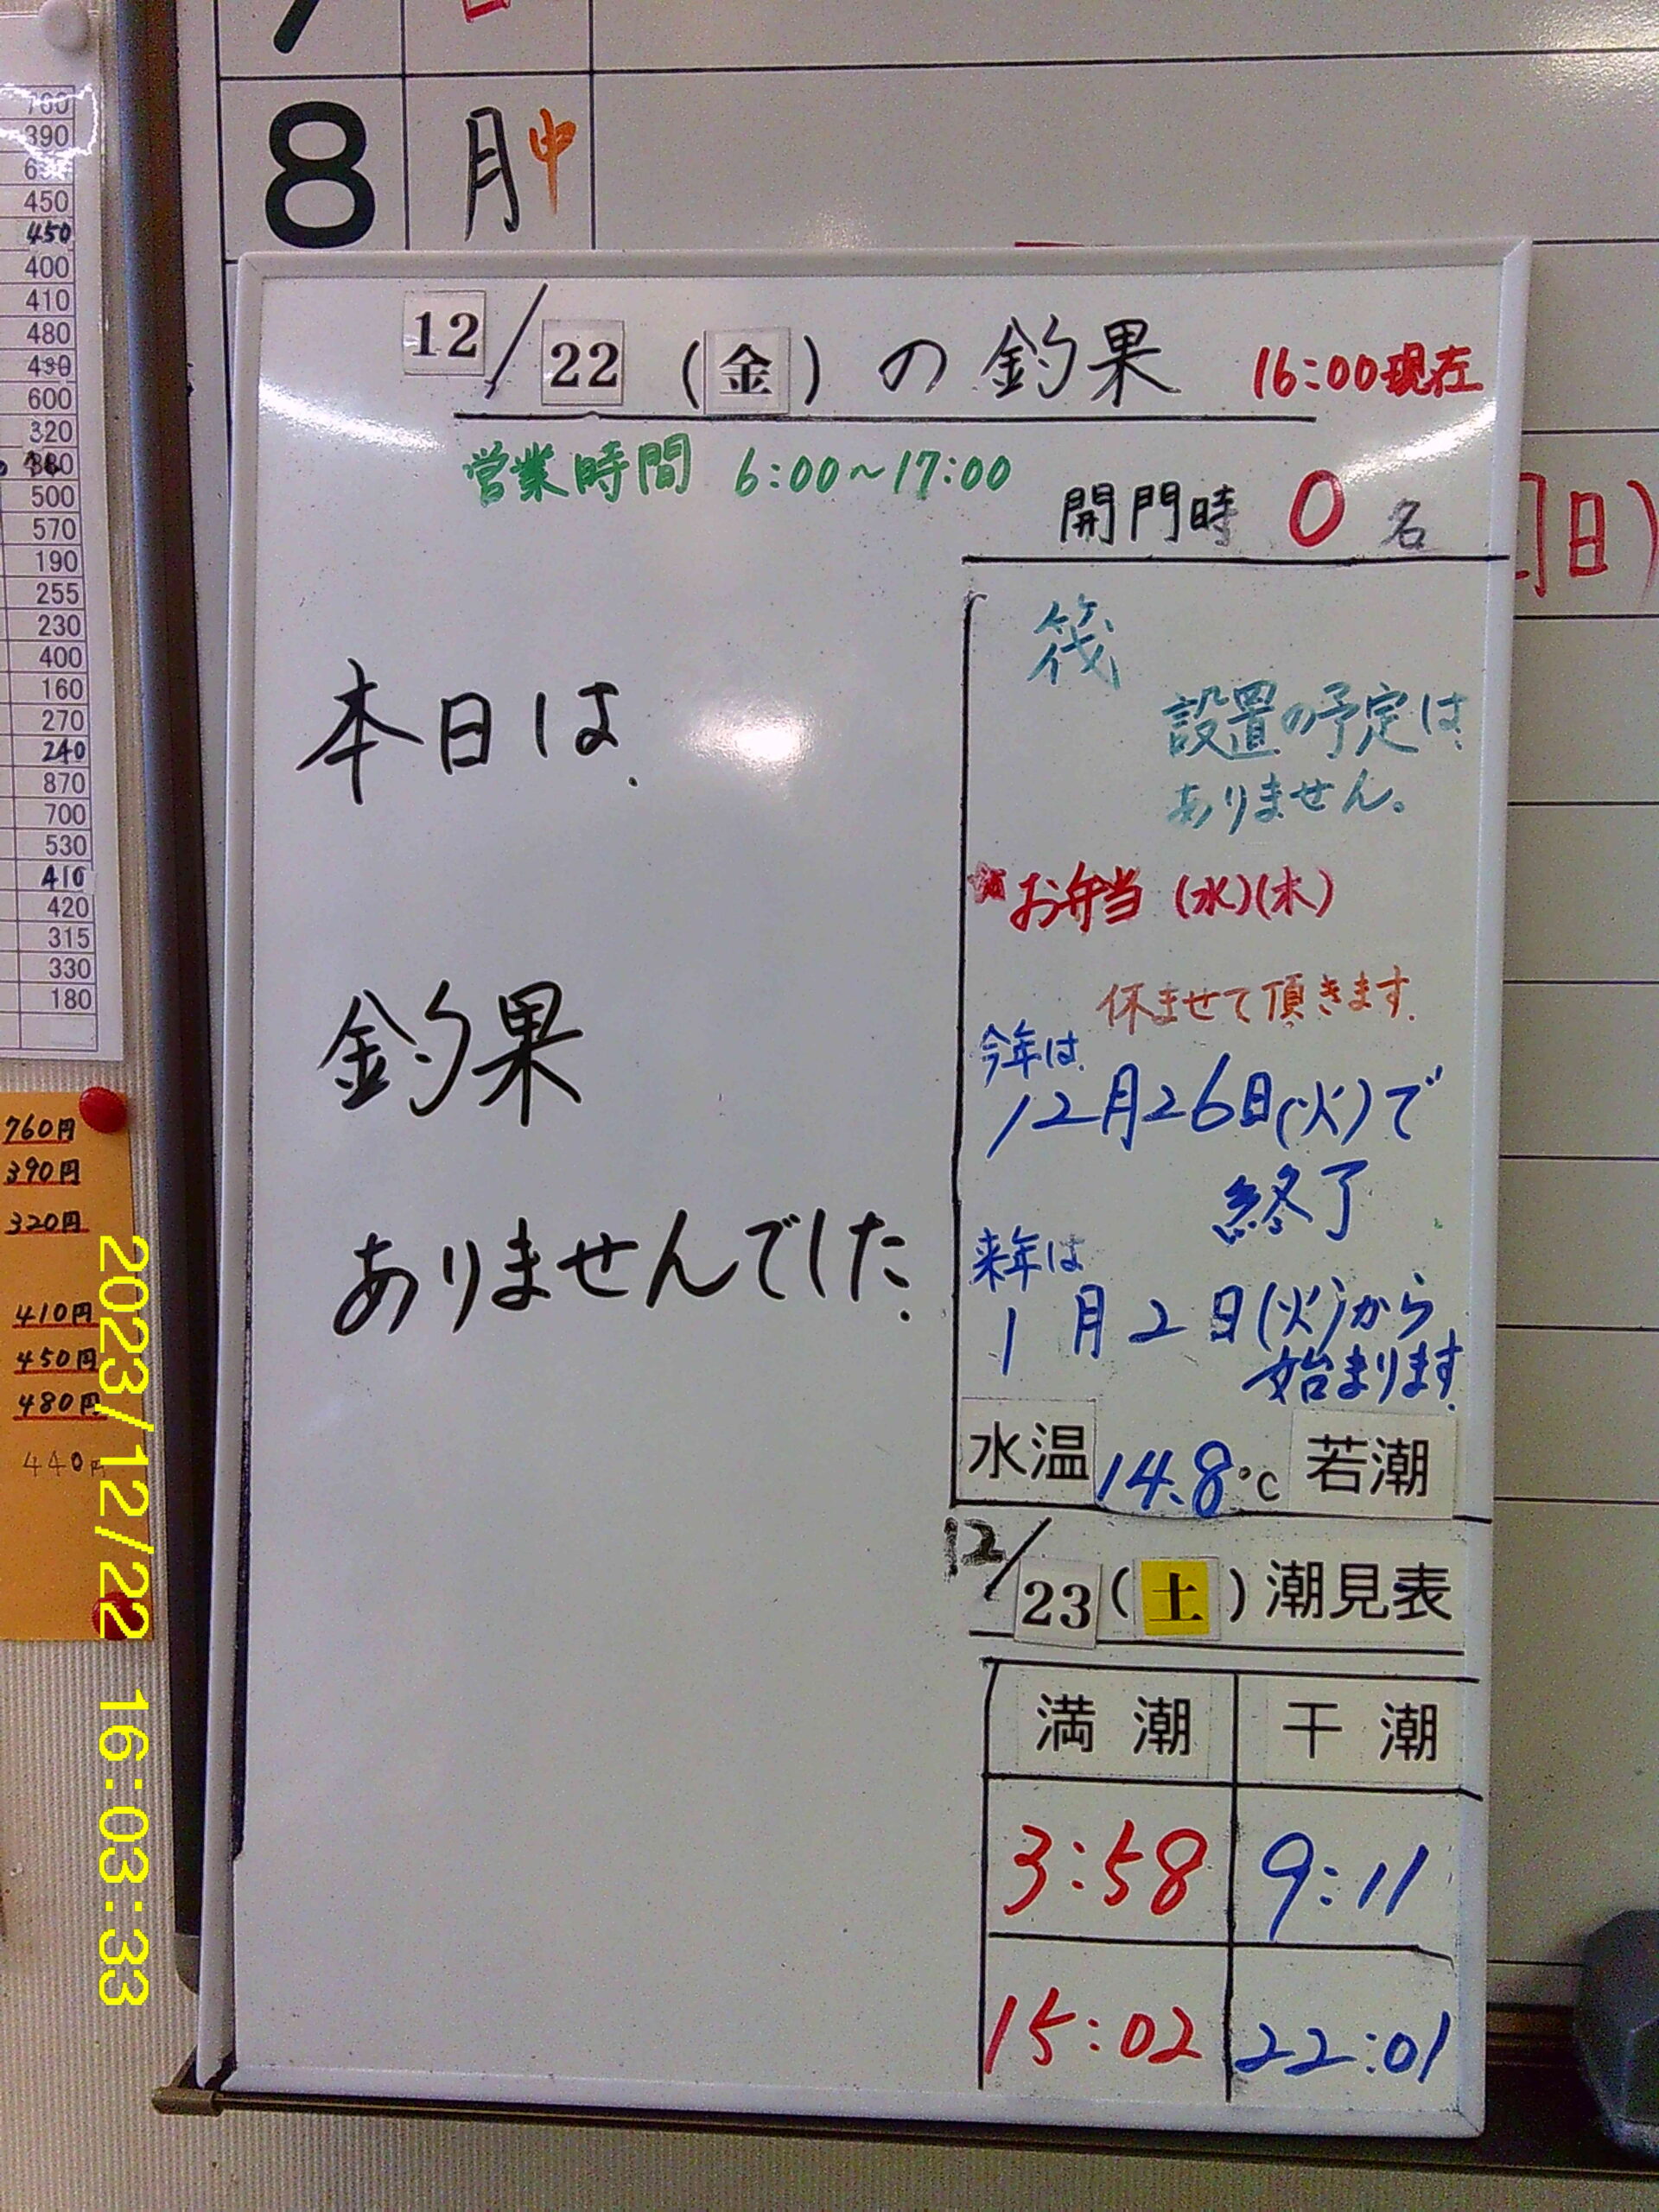 8 月 中
12/22(金)の釣果 16:00現在
営業時間 6:00~17:00
開門時 0名
日)
本日は.
釣果
ありませんでした.
筏
設置の予定は
ありません。
★お弁当 (水)(木)
休ませて頂きます.
今年は
12月26日(火)で
終了
来年は
1月2日(火)から
始まります.
水温 14.8℃ 若潮
12/23(土)潮見表
満潮 干潮
3:58 9:11
15:02 22:01
760
390
450
450
400
410
480
600
320
500
570
190
255
230
400
160
270
240
870
700
530
410
420
315
330
180
760円
390円
320円
410円
450円
480円
440円
2023/12/22 16:03:33